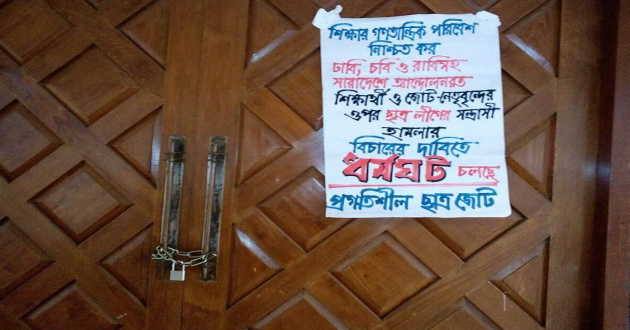 শিক্ষার গণতান্ত্রিক পরিবেশ
নিশ্চিত কর
ঢাবি, চবি ও রাবিসহ
সারাদেশে আন্দোলনরত
শিক্ষার্থী ও জোট-নেতৃবৃন্দের
ওপর ছাত্র লীগের সন্ত্রাসী
হামলার
বিচারের দাবিতে
ধর্মঘট চলছে
প্রগতিশীল ছাত্র জোট